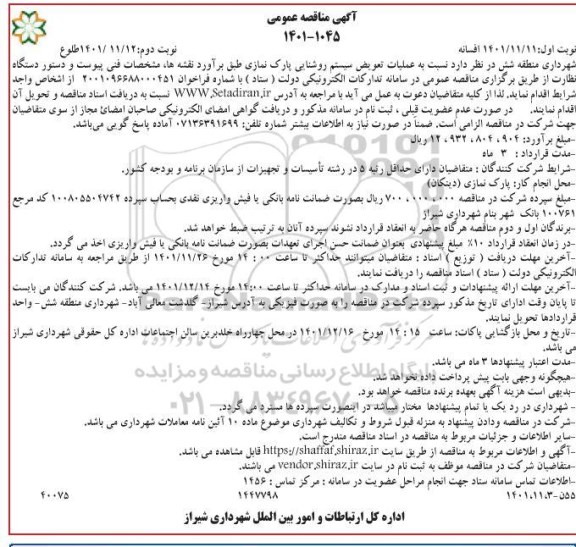 آگهی مناقصه عمومی
۱۴۰۱-۱۰۴۵
نوبت اول: ۱۴۰۱/۱۱/۱۱ افسانه
نوبت دوم: ۱۴۰۱/۱۱/۱۲ طلوع
شهرداری منطقه شش در نظر دارد نسبت به عملیات تعویض سیستم روشنایی پارک نمازی طبق برآورد نقشه ها، مشخصات فنی پیوست و دستور دستگاه
نظارت از طریق برگزاری مناقصه عمومی در سامانه تدارکات الکترونیکی دولت ( ستاد ) با شماره فراخوان ۲۰۰۱۰۹۶۶۸۸۰۰۰۴۵۱ از اشخاص واجد
شرایط اقدام نماید. لذا از کلیه متقاضیان دعوت به عمل می آید با مراجعه به آدرس WWW.Setadiran.ir نسبت به دریافت اسناد مناقصه و تحویل آن
اقدام نمایند. در صورت عدم عضویت قبلی ، ثبت نام در سامانه مذکور و دریافت گواهی امضای الکترونیکی صاحبان امضائ مجاز از سوی متقاضیان
جهت شرکت در مناقصه الزامی است. ضمناً در صورت نیاز به اطلاعات بیشتر شماره تلفن: ۰۷۱۳۶۳۹۱۶۹۹ آماده پاسخ گویی می‌باشد.
-مبلغ برآورد: ۹۰۴ ، ۸۰۴ ، ۹۳۲ ، ۱۲ ریال
-مدت قرارداد : ۳ ماه
-شرایط شرکت کنندگان : متقاضیان دارای حداقل رتبه ۵ در رشته تأسیسات و تجهیزات از سازمان برنامه و بودجه کشور.
-محل انجام کار: پارک نمازی (دینکان)
-مبلغ سپرده شرکت در مناقصه ۰۰۰ ، ۰۰۰ ، ۷۰۰ ریال بصورت ضمانت نامه بانکی یا فیش واریزی نقدی بحساب سپرده ۱۰۰۸۰۵۵۰۴۷۴۲ کد مرجع
۱۰۰۷۶۱ بانک شهر بنام شهرداری شیراز
-برندگان اول و دوم مناقصه هرگاه حاضر به انعقاد قرارداد نشوند سپرده آنان به ترتیب ضبط خواهد شد.
-در زمان انعقاد قرارداد ۱۰٪ مبلغ پیشنهادی بعنوان ضمانت حسن اجرای تعهدات بصورت ضمانت نامه بانکی یا فیش واریزی اخذ می گردد.
-آخرین مهلت دریافت ( توزیع ) اسناد : متقاضیان میتوانند حداکثر تا ساعت ۱۴:۰۰ مورخ ۱۴۰۱/۱۱/۲۶ از طریق مراجعه به سامانه تدارکات
الکترونیکی دولت ( ستاد ) اسناد مناقصه را دریافت نمایند.
-آخرین مهلت ارائه پیشنهادات و ثبت اسناد و مدارک در سامانه حداکثر تا ساعت ۱۴:۰۰ مورخ ۱۴۰۱/۱۲/۱۴ می باشد. شرکت کنندگان می بایست
تا پایان وقت اداری تاریخ مذکور سپرده شرکت در مناقصه را به صورت فیزیکی به آدرس شیراز- گلدشت معالی آباد- شهرداری منطقه شش- واحد
قراردادها تحویل نمایند.
-تاریخ و محل بازگشایی پاکات: ساعت ۱۴:۱۵ مورخ ۱۴۰۱/۱۲/۱۶ در محل چهارراه خلدبرین سالن اجتماعات اداره کل حقوقی شهرداری شیراز
می باشد.
-مدت اعتبار پیشنهادها ۳ ماه می باشد.
-هیچگونه وجهی بابت پیش پرداخت داده نخواهد شد.
-بدیهی است هزینه آگهی بعهده برنده مناقصه خواهد بود.
- شهرداری در رد یک یا تمام پیشنهادها مختار میباشد در اینصورت سپرده ها مسترد می گردد.
-شرکت در مناقصه ودادن پیشنهاد به منزله قبول شروط و تکالیف شهرداری موضوع ماده ۱۰ آئین نامه معاملات شهرداری می باشد.
-سایر اطلاعات و جزئیات مربوط به مناقصه در اسناد مناقصه مندرج است.
-آگهی و اطلاعات مربوط به مناقصه از طریق سایت https://shaffaf.shiraz.ir قابل مشاهده می باشد.
-متقاضیان شرکت در مناقصه موظف به ثبت نام در سایت vendor.shiraz.ir می باشند.
-اطلاعات تماس سامانه ستاد جهت انجام مراحل عضویت در سامانه : مرکز تماس : ۱۴۵۶
۱۴۰۱.۱۱.۳-۰۵۵
۱۴۴۷۷۹۸
۴۰۰۷۵
اداره کل ارتباطات و امور بین الملل شهرداری شیراز